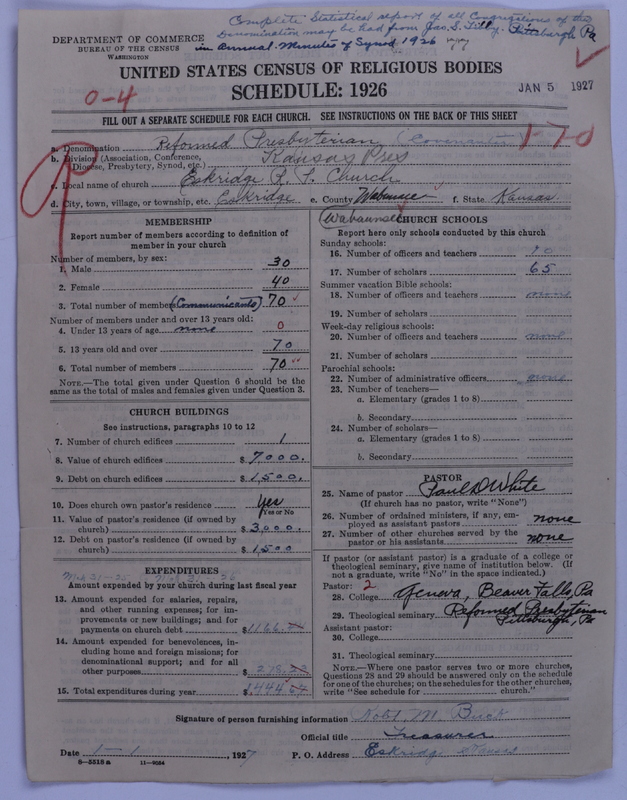 Complete Statistical report of all Congregations of the
Denomination may be had from Jas. S. Tibby. Pittsburgh, Pa
in Annual Minutes of Synod 1926
DEPARTMENT OF COMMERCE
BUREAU OF THE CENSUS
WASHINGTON
UNITED STATES CENSUS OF RELIGIOUS BODIES
SCHEDULE: 1926
JAN 5 1927
0-4
FILL OUT A SEPARATE SCHEDULE FOR EACH CHURCH. SEE INSTRUCTIONS ON THE BACK OF THIS SHEET
1-70
a. Denomination Reformed Presbyterian (Covenanter)
b. Division (Association, Conference, Diocese, Presbytery, Synod, etc.) Kansas Pres
c. Local name of church Eskridge R. P. Church
d. City, town, village, or township, etc. Eskridge e. County Wabaunsee f. State Kansas
(Wabaunsee)
MEMBERSHIP
Report number of members according to definition of
member in your church
Number of members, by sex:
1. Male 30
2. Female 40
3. Total number of members (Communicants) 70
Number of members under and over 13 years old:
4. Under 13 years of age none 0
5. 13 years old and over 70
6. Total number of members 70
NOTE.—The total given under Question 6 should be the
same as the total of males and females given under Question 3.
CHURCH BUILDINGS
See instructions, paragraphs 10 to 12
7. Number of church edifices 1
8. Value of church edifices $ 7000.
9. Debt on church edifices $ 1,500.
10. Does church own pastor's residence Yes
Yes or No
11. Value of pastor's residence (if owned by
church) $ 3,000.
12. Debt on pastor's residence (if owned by
church) $ 1,500
EXPENDITURES
Amount expended by your church during last fiscal year
13. Amount expended for salaries, repairs,
and other running expenses; for im-
provements or new buildings; and for
payments on church debt $ 1166.
14. Amount expended for benevolences, in-
cluding home and foreign missions; for
denominational support; and for all
other purposes $ 278.
15. Total expenditures during year $ 1444
CHURCH SCHOOLS
Report here only schools conducted by this church
Sunday schools:
16. Number of officers and teachers 10
17. Number of scholars 65
Summer vacation Bible schools:
18. Number of officers and teachers none
19. Number of scholars
Week-day religious schools:
20. Number of officers and teachers none
21. Number of scholars
Parochial schools:
22. Number of administrative officers none
23. Number of teachers—
a. Elementary (grades 1 to 8)
b. Secondary
24. Number of scholars—
a. Elementary (grades 1 to 8)
b. Secondary
PASTOR
25. Name of pastor Paul D White
(If church has no pastor, write "None")
26. Number of ordained ministers, if any, em-
ployed as assistant pastors none
27. Number of other churches served by the
pastor or his assistants none
If pastor (or assistant pastor) is a graduate of a college or
theological seminary, give name of institution below. (If
not a graduate, write "No" in the space indicated.)
Pastor: 2
28. College Geneva, Beaver Falls, Pa
29. Theological seminary Reformed Presbyterian
Pittsburgh, Pa
Assistant pastor:
30. College
31. Theological seminary
NOTE.—Where one pastor serves two or more churches,
Questions 28 and 29 should be answered only on the schedule
for one of the churches; on the schedules for the other churches,
write "See schedule for church."
Signature of person furnishing information Robt. M. Buck
Official title Treasurer
Date 1-1, 1927 P. O. Address Eskridge Kansas
8-5518a 11-9564